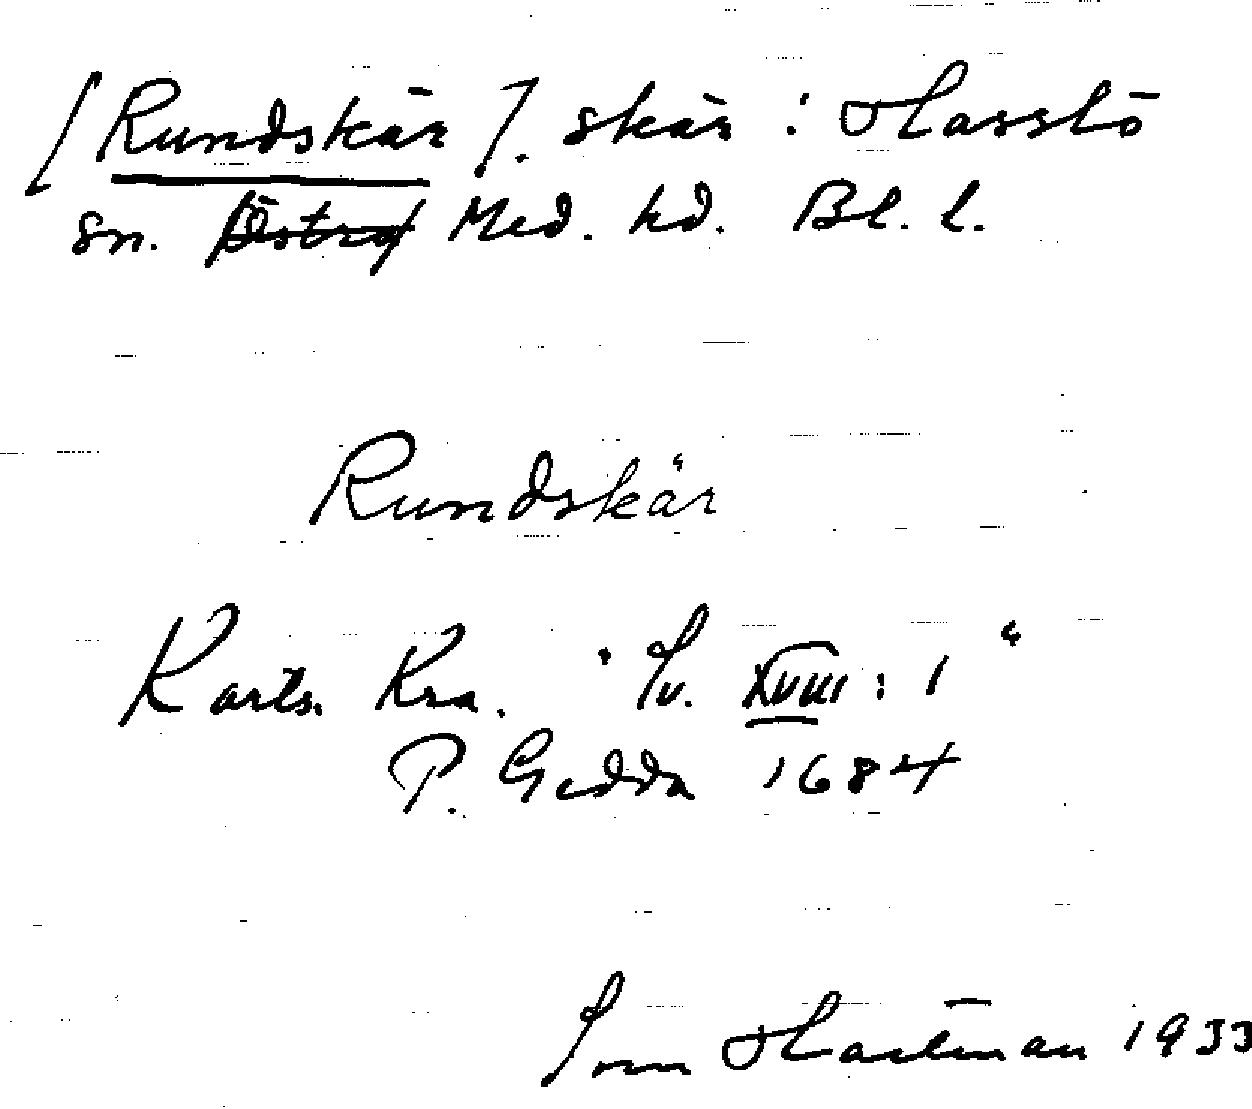 [Rundskär]. skär i Hasslö
sn. Östra Med. hd. Bl. l.
Rundskär
Karts. Kra. "Sv. XVIII: 1"
P. Gedda 1684
Hartman 1933